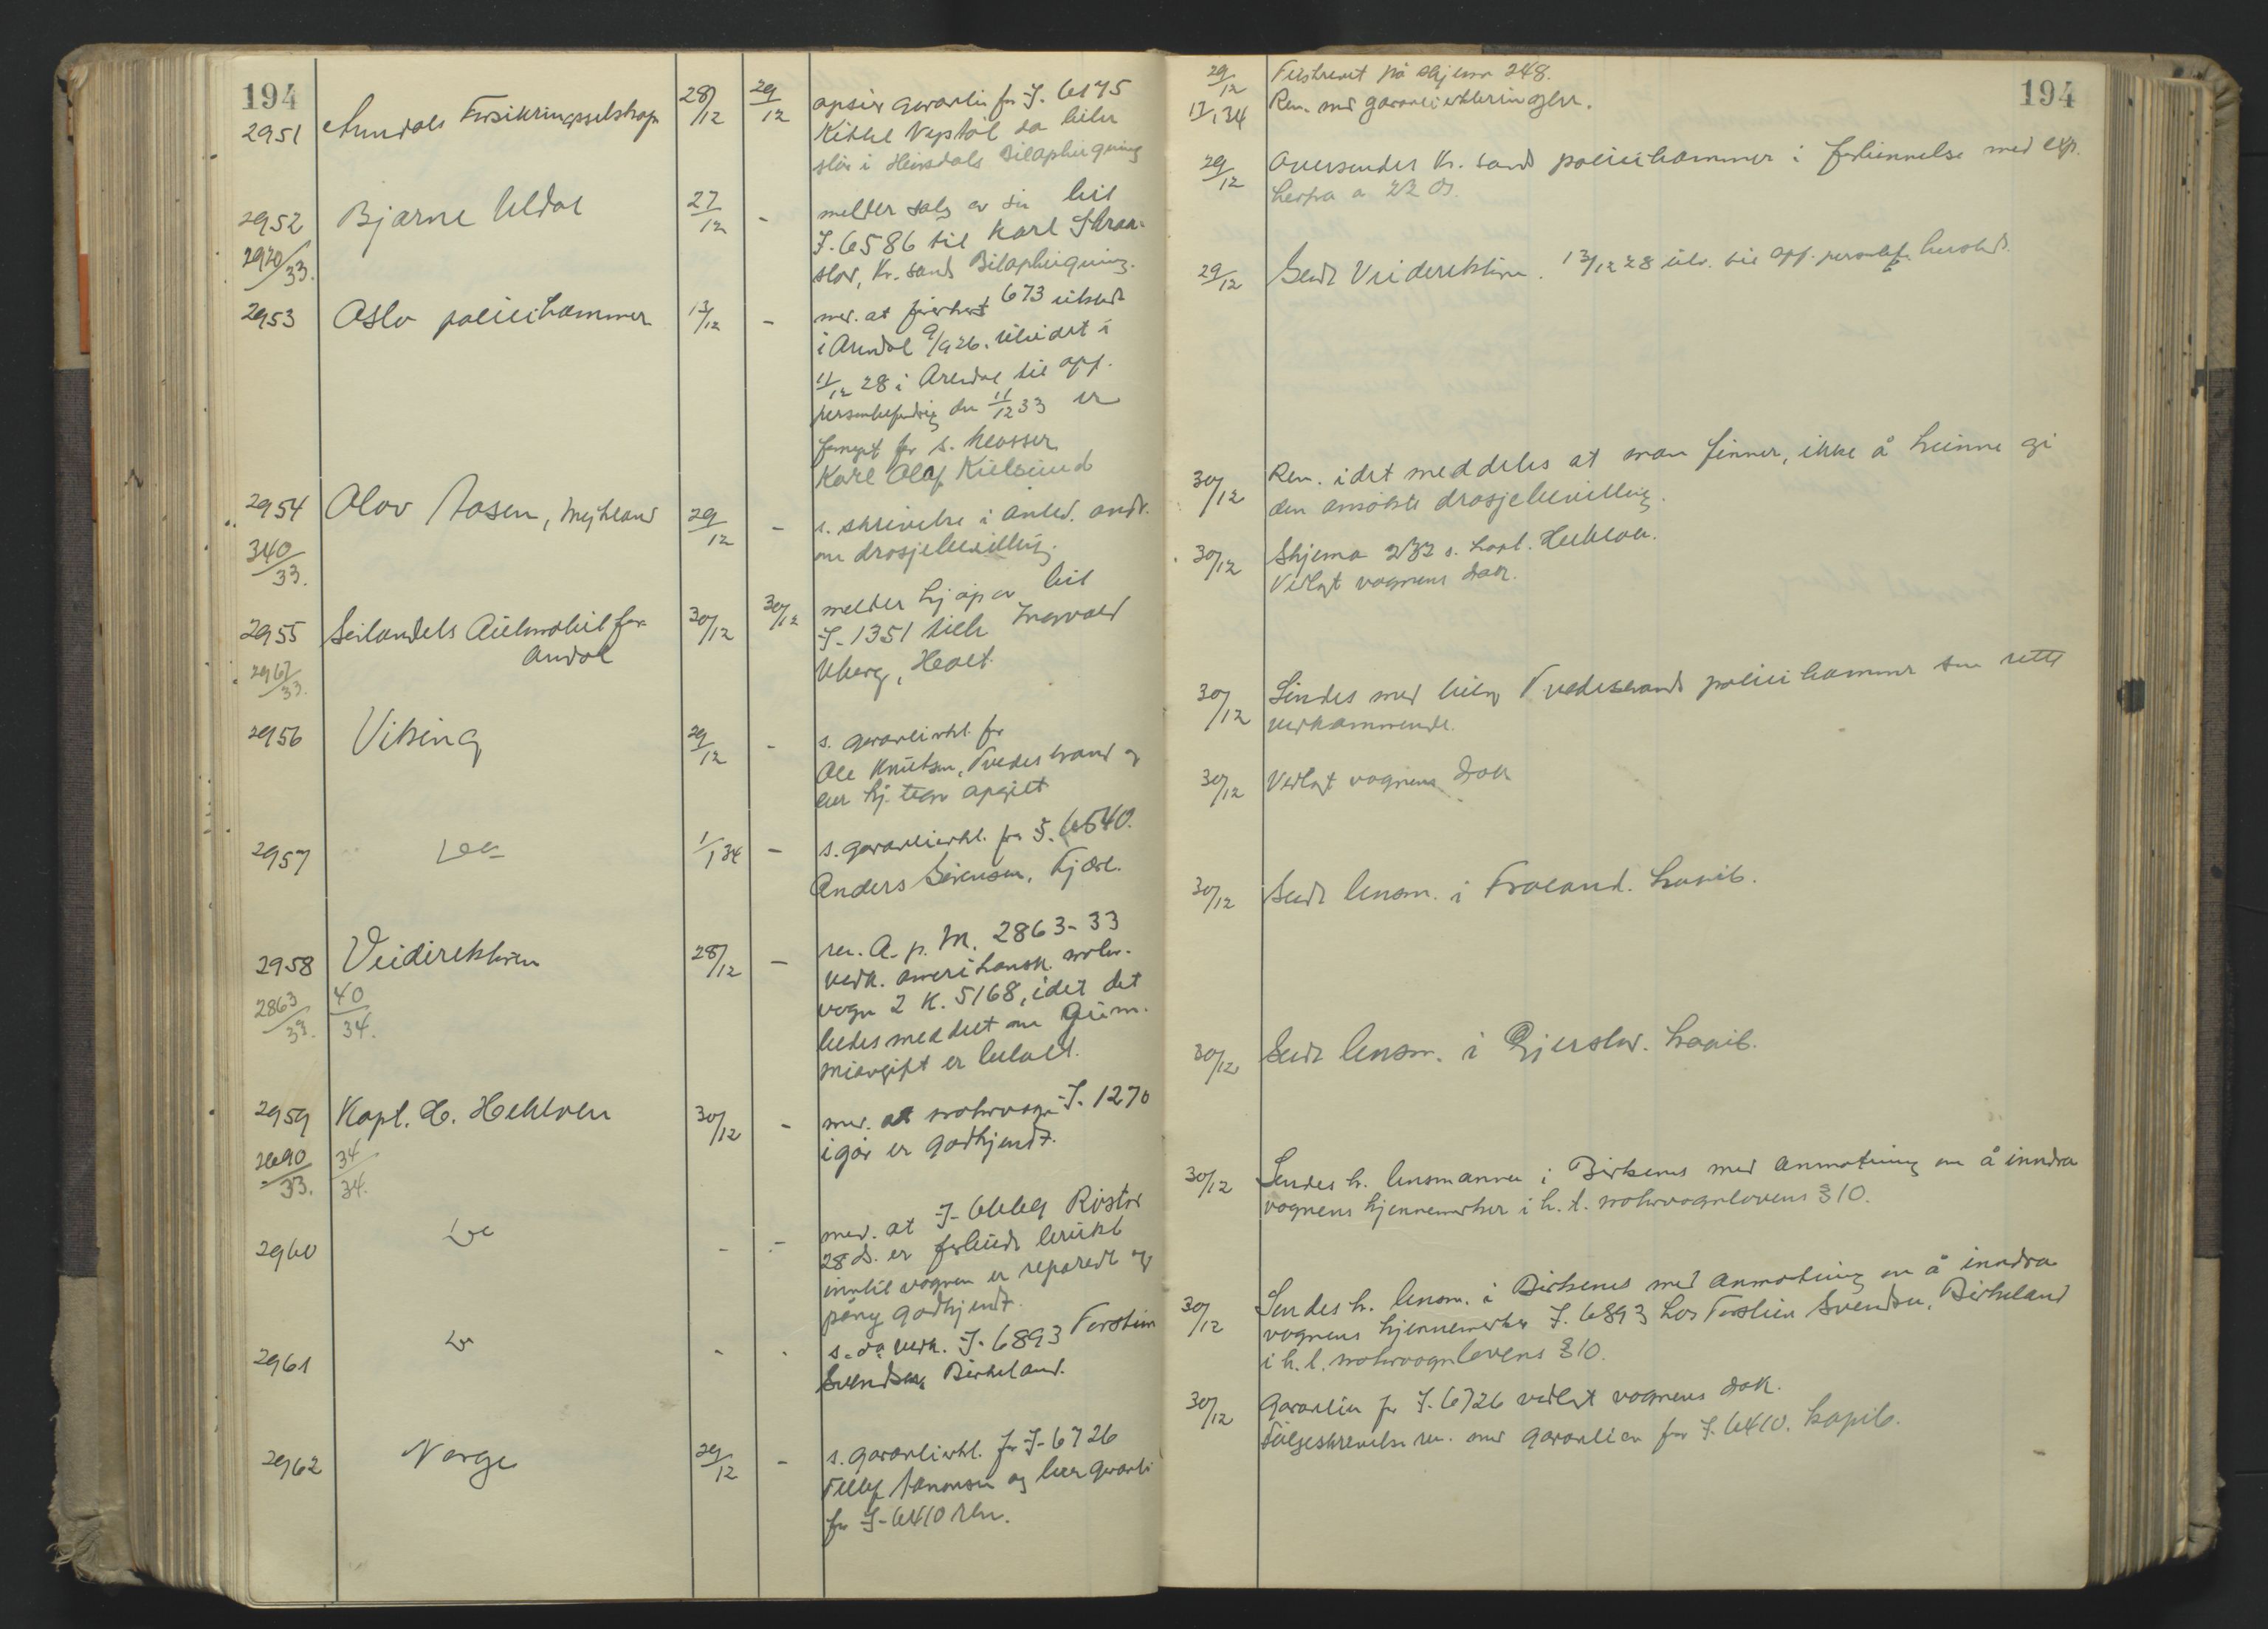 194
2951 Arendals Forsikringsselskap 28/12 29/12 opsier garantien for J. 6175
Kittel Vegstøl da bilen
står i Heirsdals Bilophugning
2952 Bjarne Uldal 27/12 - melder salg av sin bil
2970/33. J. 6586 til Karl
Kr. sands Bilophugning.
2953 Oslo politikammer 13/12 - med. at førerkort 673 utstedt
i Arendal 9/9 26. utvidet i
11/12 28 i Arendal til opp.
personbefordring den 11/12 33 er
fornyet for s. klasser
Karl Olaf Kielsund
2954 Olov Aasen, Mykland 29/12 - s. skrivelse i anled. andr.
340/33. om drosjebevilling.
2955 Sørlandets Automobilfor. 30/12 30/12 melder kjøp av bil
Arndal J-1351 tilh. Ingvald
2967/33. Uberg, Holt.
2956 Viking 29/12 - s. garantierkl. for
Ole Knutsen, Tvedestrand og
kj. tegn opgitt
2957 do 1/1 34 - s. garantierkl. for J. 6540.
Anders Sørensen, Fjære.
2958 Veidirektøren 28/12 - ren. A. p. M. 2863-33
2863/33. 40/34. vedk. amerikansk motor-
vogn 2 K. 5168, idet det
bedes meddelt om gum-
miavgift er betalt.
2959 Kapt. H. Hekloen 30/12 - med. at motorvogn J. 1270
2690/33. 34/34. igår er godkjendt.
2960 do - - med. at J-6669 Ristøl
28 ds. er forbudt brukt
inntil vognen er reparert og
påny godkjendt.
2961 do - - s. do vedk. J. 6893 Torstein
Svendsen, Birkeland.
2962 Norge 29/12 - s. garantierkl. for J-6726
Tellef Aanonsen og ber garanti
for J-6410 ren.
194
29/12 Tilskrevet på skjema 248.
17/1 34 Ren. med garantierklæringen.
29/12 Oversendes Kr. sand politikammer i forbinnelse med exp.
herfra a 22 ds.
29/12 Sendt Veidirektøren. 13/12 28 utv. til opp. personbef. herstedt.
30/12 Ren. idet meddeles at man finner, ikke å kunne gi
den ansøkte drosjebevilling.
30/12 Skjema 233 s. kapt. Hekloen.
Vedlagt vognens dok.
30/12 Sendes med bilag Tvedestrand politikammer som rette
vedkommende.
30/12 Vedlagt vognens dok
30/12 Sendt lensm. i Froland. kapit.
30/12 Sendt lensm. i Gjerstad. kapit.
30/12 Sendes h. lensmannen i Birkenes med anmodning om å inndra
vognens kjennemerker i h. t. motorvognlovens § 10.
30/12 Sendes h. lensm. i Birkenes med anmodning om å inndra
vognens kjennemerker J. 6893 hos Torstein Svendsen, Birkeland
i h. t. motorvognlovens § 10.
30/12 Garantien for J. 6726 vedlagt vognens dok.
Følgeskrivelse ren. med garantien for J. 6410. kapit.